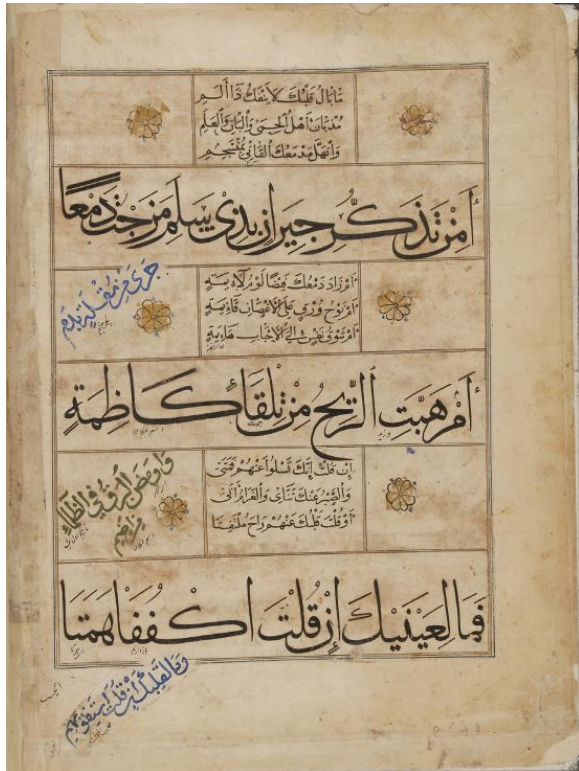 مَا بَالُ قَلْبِكَ لَا يَنْفَكُّ ذَا أَلَمِ
مُذْ بَانَ أَهْلُ الْحِمَى وَالْبَانِ وَالْعَلَمِ
وَانْهَلَّ مَدْمَعُكَ الْقَانِي بِمُنْسَجِمِ
أَمِنْ تَذَكُّرِ جِيرَانٍ بِذِي سَلَمِ مَزَجْتَ دَمْعًا
جَرَى مِنْ مُقْلَةٍ بِدَمِ
أَمْ زَادَ دَمْعَكَ فَيْضًا لَوْمُ لَائِمَةٍ
أَمْ نَوْحُ وُرْقٍ عَلَى الْأَغْصَانِ
أَمْ شَوْقُ نَفْسٍ إِلَى الْأَحْبَابِ هَائِمَةٍ
أَمْ هَبَّتِ الرِّيحُ مِنْ تِلْقَاءِ كَاظِمَةٍ
وَأَوْمَضَ الْبَرْقُ فِي الظَّلْمَاءِ
مِنْ إِضَمِ
إِنْ قُلْتَ إِنَّكَ تَسْلُوا عَنْهُمْ فَمَتَى
وَالصَّبْرُ عَنْكَ تَنَاءَى وَالْغَرَامُ أَتَى
أَوْ قُلْتَ قَلْبُكَ عَنْهُمْ رَاحَ مُلْتَفِتَا
فَمَا لِعَيْنَيْكَ إِنْ قُلْتَ اكْفُفَا هَمَتَا
وَمَا لِقَلْبِكَ إِنْ قُلْتَ اسْتَفِقْ يَهِمِ